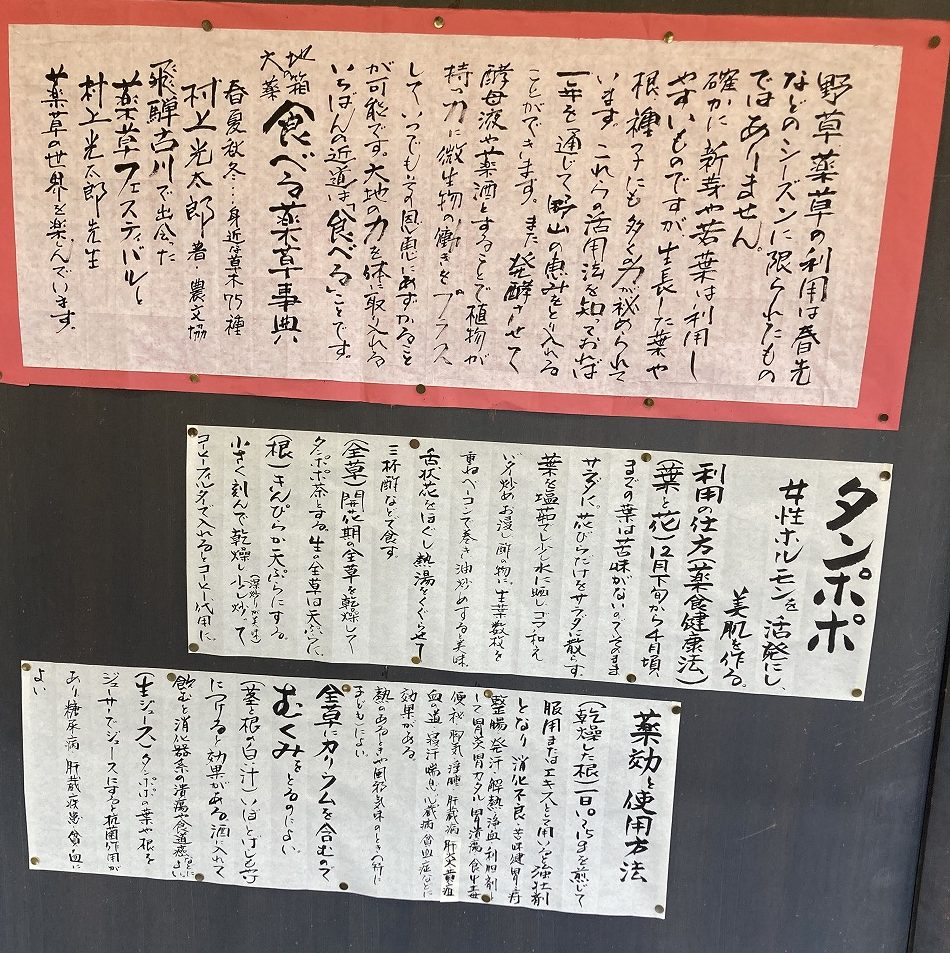 野草薬草の利用は春先
などのシーズンに限られたもの
ではありません。
確かに新芽や若葉は利用し
やすいものですが、生長した葉や
根、種子にも多くの力が秘められて
います。これらの活用法を知っておけば
一年を通じて野山の恵みをとり入れる
ことができます。また発酵させて
酵母液や薬酒とすることで植物が
持つ力に微生物の働きをプラス
して、いつでもその恩恵にあずかること
が可能です。大地の力を体に取り入れる
いちばんの近道は「食べる」ことです。
大地の薬箱 食べる薬草事典
春夏秋冬…身近な草木75種
村上光太郎 著・農文協
飛騨古川で出会った
薬草フェスティバルと
村上光太郎先生
薬草の世界を楽しんでいます。
タンポポ
女性ホルモンを活発にし、
美肌を作る。
利用の仕方(薬食健康法)
(葉と花)12月下旬から4月頃
までの葉は苦味がないのでそのまま
サラダに。花びらだけをサラダに散らす。
葉を塩茹でし少し水に晒しゴマ和え
バタ炒め お浸し 酢の物に、生葉数枚を
重ねベーコンで巻き油炒めすると美味
舌状花をほぐし熱湯をくぐらせて
三杯酢などで食す
(全草)開花期の全草を乾燥して
タンポポ茶とする。生の全草は天ぷらに、
(根)きんぴらか天ぷらにする。
小さく刻んで乾燥し少し炒って
(深炒りがオススメ)
コーヒーフィルターで入れるとコーヒー代用に、
薬効と使用方法
(乾燥した根)一日10〜25gを煎じて
服用またはエキスとして用いると強壮剤
となり 消化不良 苦味健胃 寿
整腸 発汗 解熱 浄血 利胆剤と
して胃炎 胃カタル 胃潰瘍 食中毒
便秘 脚気 浮腫 肝臓病 肝炎 黄疸
血の道 寝汗 喘息 心臓病 貧血症などに
効果がある。
熱のあるときや風邪気味のとき
子どもによい
全草にカリウムを含むので
むくみをとるのによい
(茎と根の白い汁)いぼとけし等
につけると効果がある。酒に入れて
飲むと消化器系の潰瘍や食道癌などによい
(生ジュース)タンポポの葉や根を
ジューサーでジュースにすると抗菌作用が
あり 糖尿病 肝臓疾患 貧血に
よい